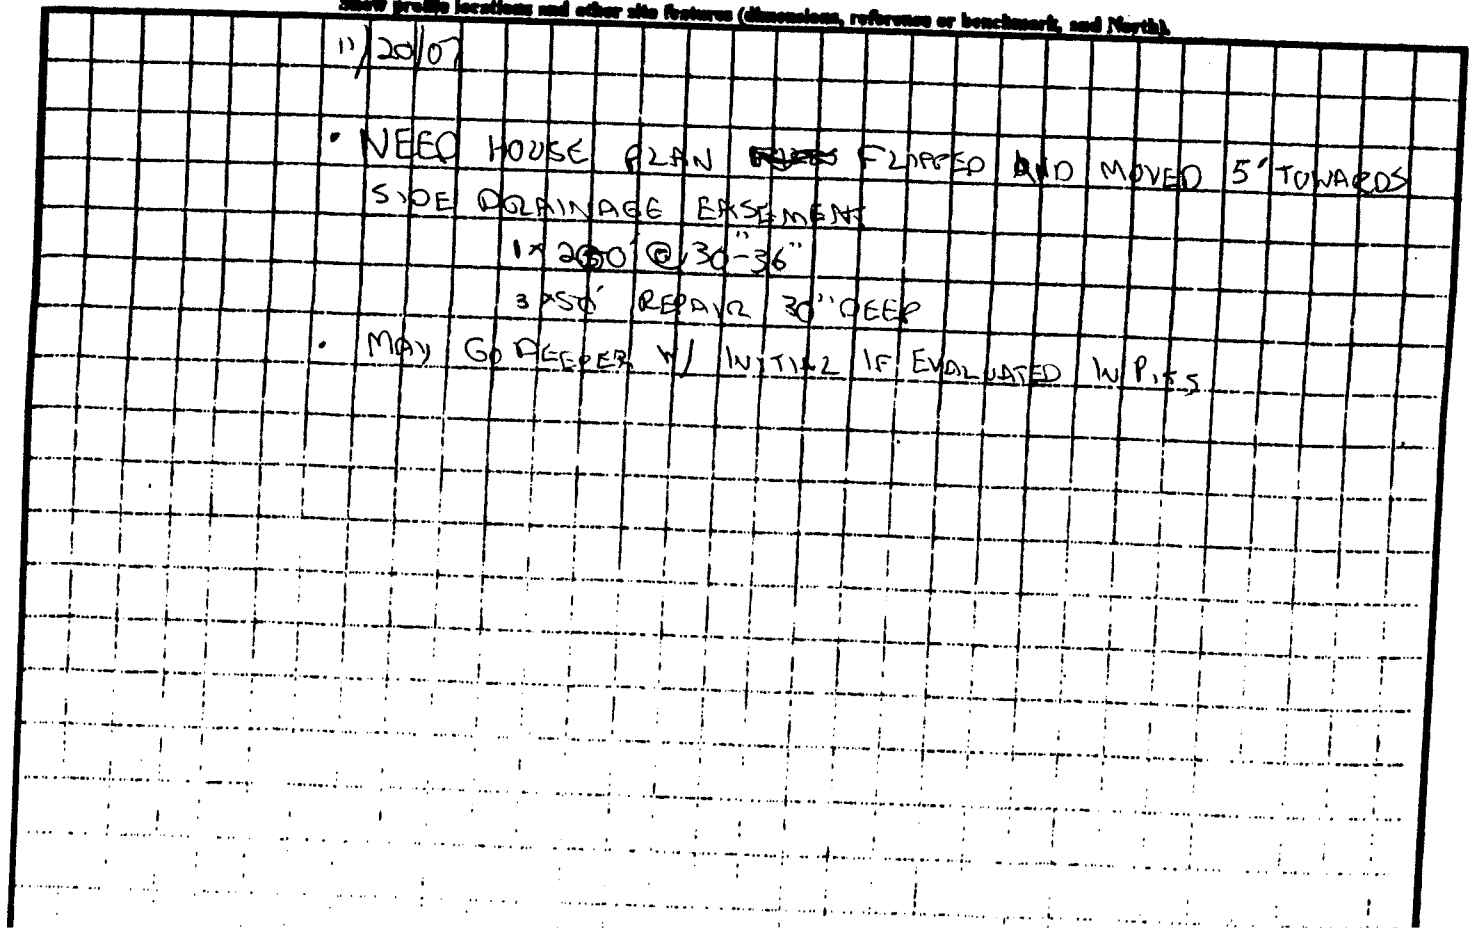 Show profile locations and other site features (dimensions, reference or benchmark, and North).
11/20/07
• NEED HOUSE PLAN FLIPPED AND MOVED 5' TOWARDS
SIDE DRAINAGE EASEMENT
1 x 200' @ 30"-36"
3 x 50' REPAIR 30" DEEP
• MAY GO DEEPER W/ INITIAL IF EVALUATED IN PITS